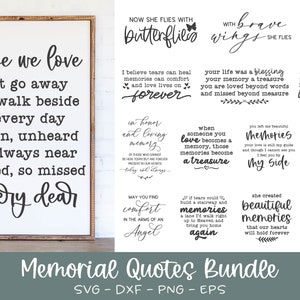 e we love
t go away
walk beside
every day
n, unheard
lways near
d, so missed
ery dear
NOW SHE FLIES WITH
butterflies
WITH brave
wings SHE FLIES
I believe tears can heal
memories can comfort
and love lives on
forever
your life was a blessing
your memory a treasure
you are loved beyond words
and missed beyond measure
in honor
and loving
memory
when
someone you
love becomes a
memory, those
memories become
a treasure
you left me beautiful
memories
your love is still my guide
and though I cannot see you
you're always by
my side
MAY YOU FIND
comfort
IN THE ARMS OF AN
Angel
if tears could
build a stairway and
memories
a lane I'd walk right up
to Heaven and
bring you home
again
she created
beautiful
memories
that our hearts
will hold forever
Memorial Quotes Bundle
SVG - DXF - PNG - EPS